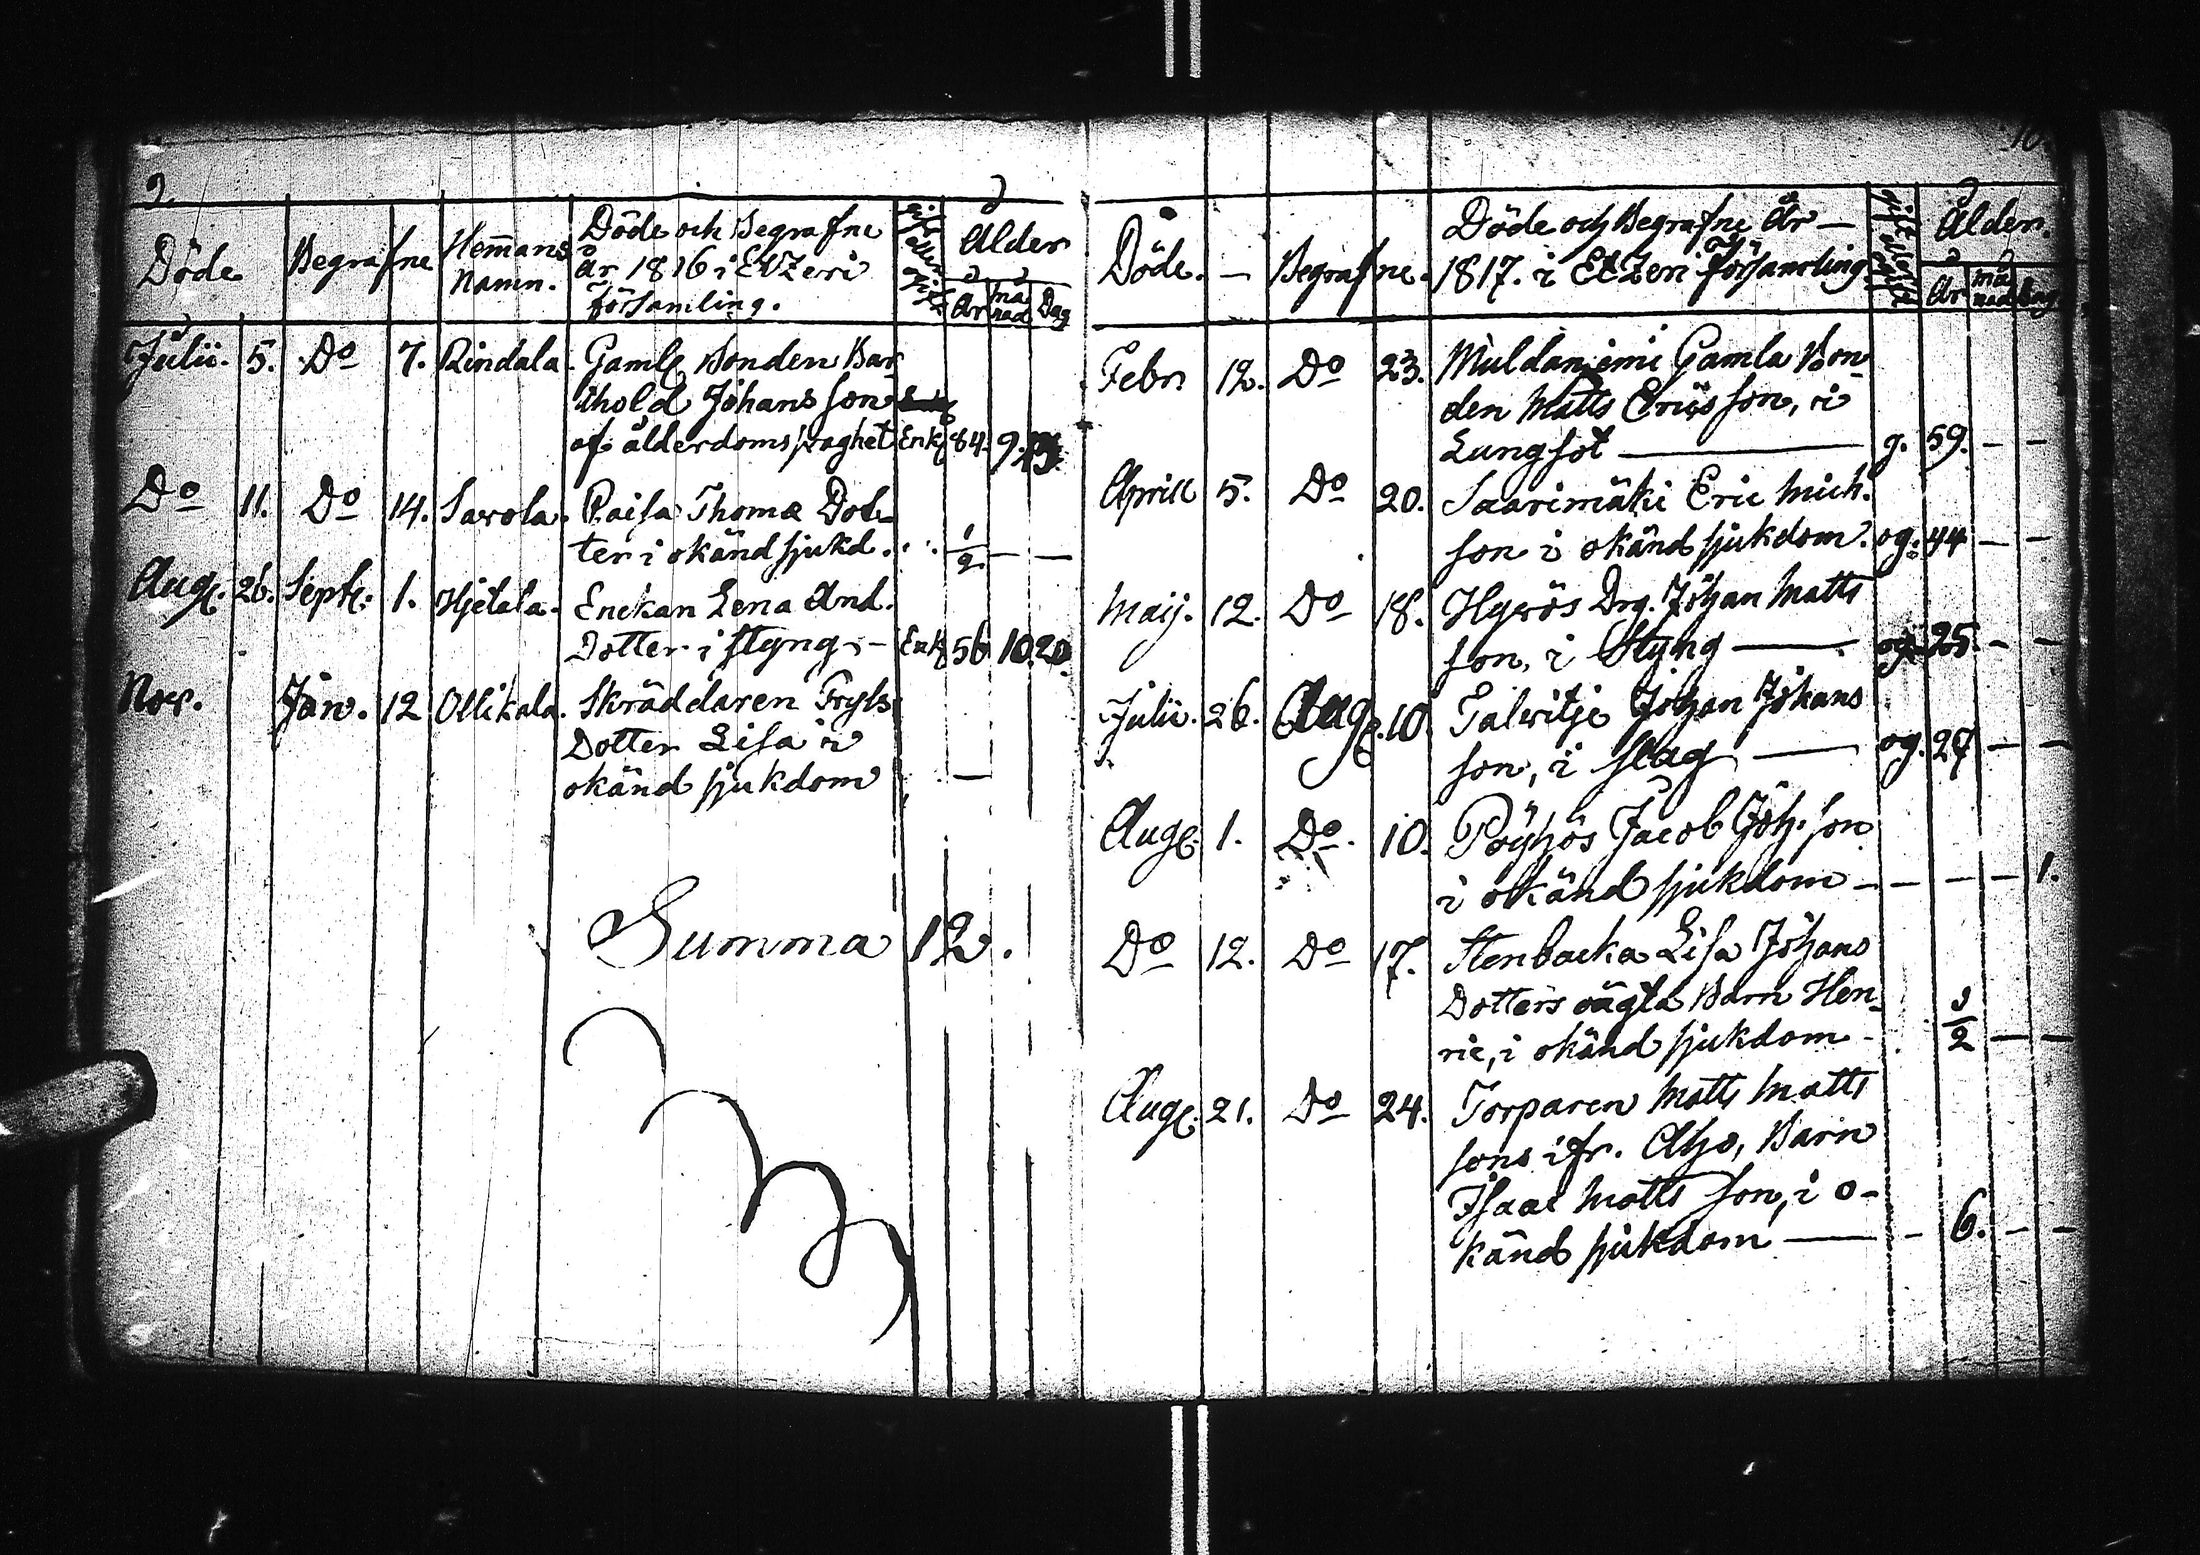 9.
Döde Begrafne Hemmans Namn. Döde och Begrafne år 1816 i Etzeri församling. gift eller ogift Ålder år månad Dag
Julii. 5. Do 7. Rindala. Gamle Bonden Bar
thold Johans son
af ålderdoms svaghet Enkl 84. 9.
Do 11. Do 14. Savola. Caisa Thomæ Dot-
ter i okänd sjukd. 1/2 — —
Aug. 26. Sept. 1. Hjelala. Enckan Lena And.
Dotter i styng - Enk 56 10 20
Nov. Jan. 12 Ollikala. Skräddaren Fryls
Dotter Lisa i
okänd sjukdom —
Summa 12.
10.
Döde. — Begrafne. Döde och Begrafne År — 1817. i Etzeri församling. gift eller ogift Ålder. år månad Dag
Febr. 12. Do 23. Muldaniemi Gamla Bon
den Matts Ericsson, i
Lungsot — g. 59. — —
Aprill 5. Do 20. Saarimäki Eric Mich.
son i okänd sjukdom. og. 44 — —
Maij. 12. Do 18. Hyvös Drg. Johan Matts
son, i Styng — og 25. — —
Julii. 26. Aug. 10. Talvitje Johan Johans
son, i slag — og. 27 — —
Aug. 1. Do. 10. Pöyhös Jacob Joh. son
i okänd sjukdom — — — — 1.
Do 12. Do 17. Stenbacka Lisa Johans
Dotters oägta Barn Hen-
ric, i okänd sjukdom - 3/2 — —
Aug. 21. Do 24. Torparen Matts Matts
sons ifr. Aho, Barn
Isaac Matts son, i o-
känd sjukdom — - 6. — —